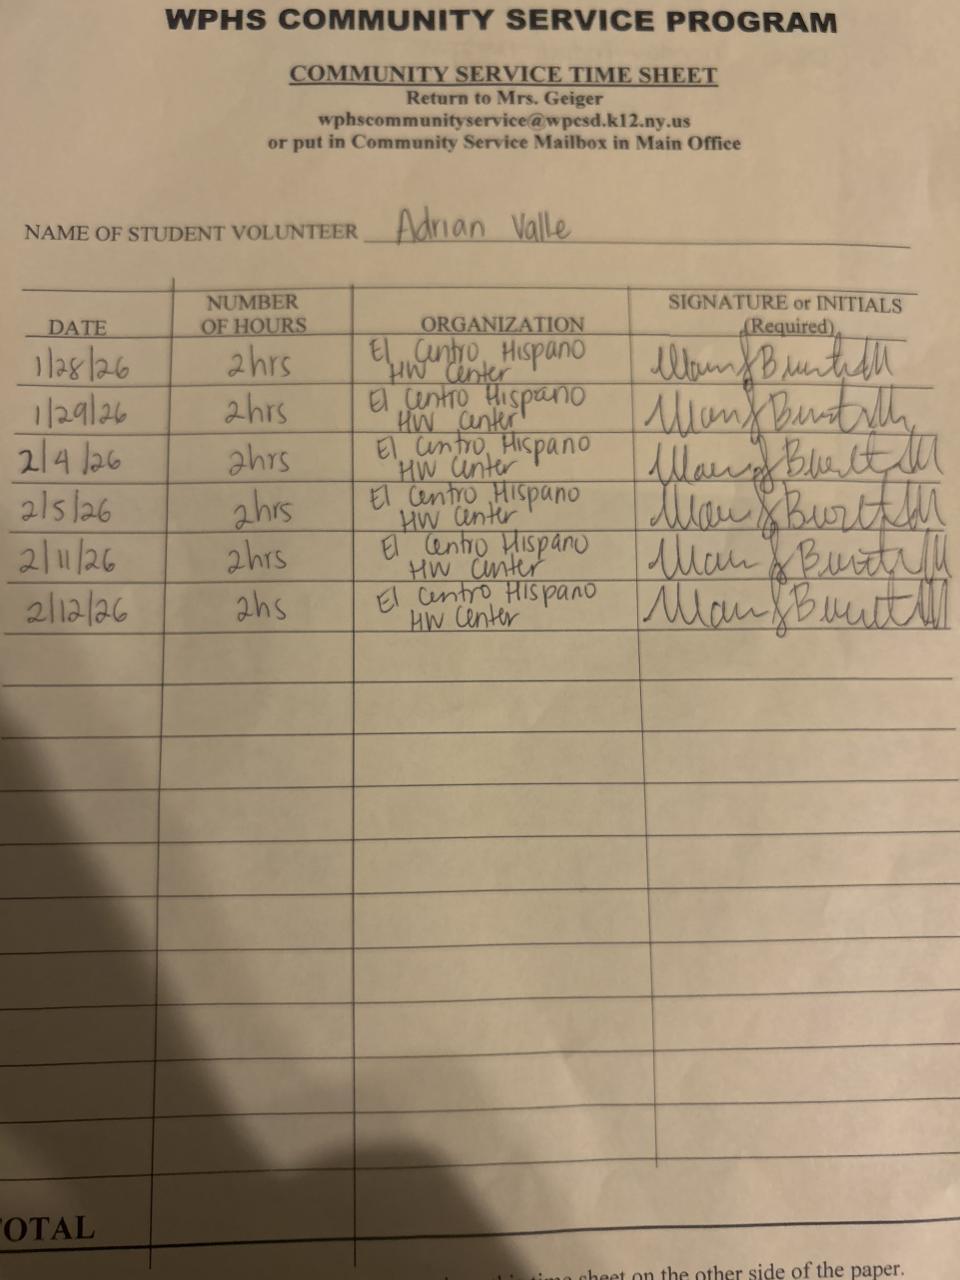 WPHS COMMUNITY SERVICE PROGRAM
COMMUNITY SERVICE TIME SHEET
Return to Mrs. Geiger
wphscommunityservice@wpcsd.k12.ny.us
or put in Community Service Mailbox in Main Office
NAME OF STUDENT VOLUNTEER Adrian Valle
DATE NUMBER OF HOURS ORGANIZATION SIGNATURE or INITIALS (Required)
1/28/26 2hrs El Centro Hispano HW Center
1/29/26 2hrs El Centro Hispano HW Center
2/4/26 2hrs El Centro Hispano HW Center
2/5/26 2hrs El Centro Hispano HW Center
2/11/26 2hrs El Centro Hispano HW Center
2/12/26 2hs El Centro Hispano HW Center
TOTAL
time sheet on the other side of the paper.